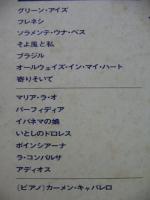 グリーン・アイズ
フレネシ
ソラメンテ・ウナ・ベス
そよ風と私
ブラジル
オールウェイズ・イン・マイ・ハート
寄りそいて
マリア・ラ・オ
パーフィディア
イパネマの娘
いとしのドロレス
ポインシアーナ
ラ・コンパルサ
アディオス
(ピアノ) カーメン・キャバレロ